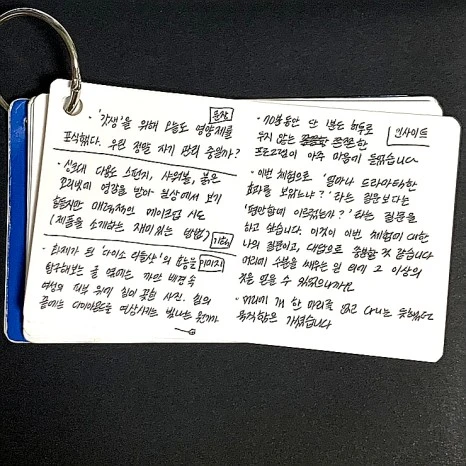 문장
· '갓생'을 위해 오늘도 영양제를
포식했다. 우린 정말 자기 관리 중일까?
· 싱크대 다용도 스펀지, 샤워볼, 붉은
영감을 받아 일상에서 보기
힘들지만 매력적인 메이크업 시도
(제품을 소개하는 재미있는 방법)
기획
· 화제가 된 '다이소 리들샷'의 효능을
이미지
탐구해보는 글 옆에는 까만 배경 속
여성의 피부 위에 침이 꽂힌 사진. 침의
끝에는 다이아몬드를 연상시키는 빛나는
인사이트
· 10분동안 단 1분도 허투로
두지 않는 촘촘한
프로그램이 아주 마음에 들었습니다
· 이번 체험으로 '얼마나 드라마틱한
효과를 보았느냐?' 라는 질문보다는
'평안함에 이르렀는가?' 라는 질문을
하고 싶습니다. 이것이 이번 체험에 대한
나의 질문이고, 대답으로 충분할 것 같습니다
머리에 수분을 채우는 일 외에 그 이상의
것을 얻을 수 있었으니까요.
· 커다란 개 한 마리를 안고
묵직함은 가셨습니다